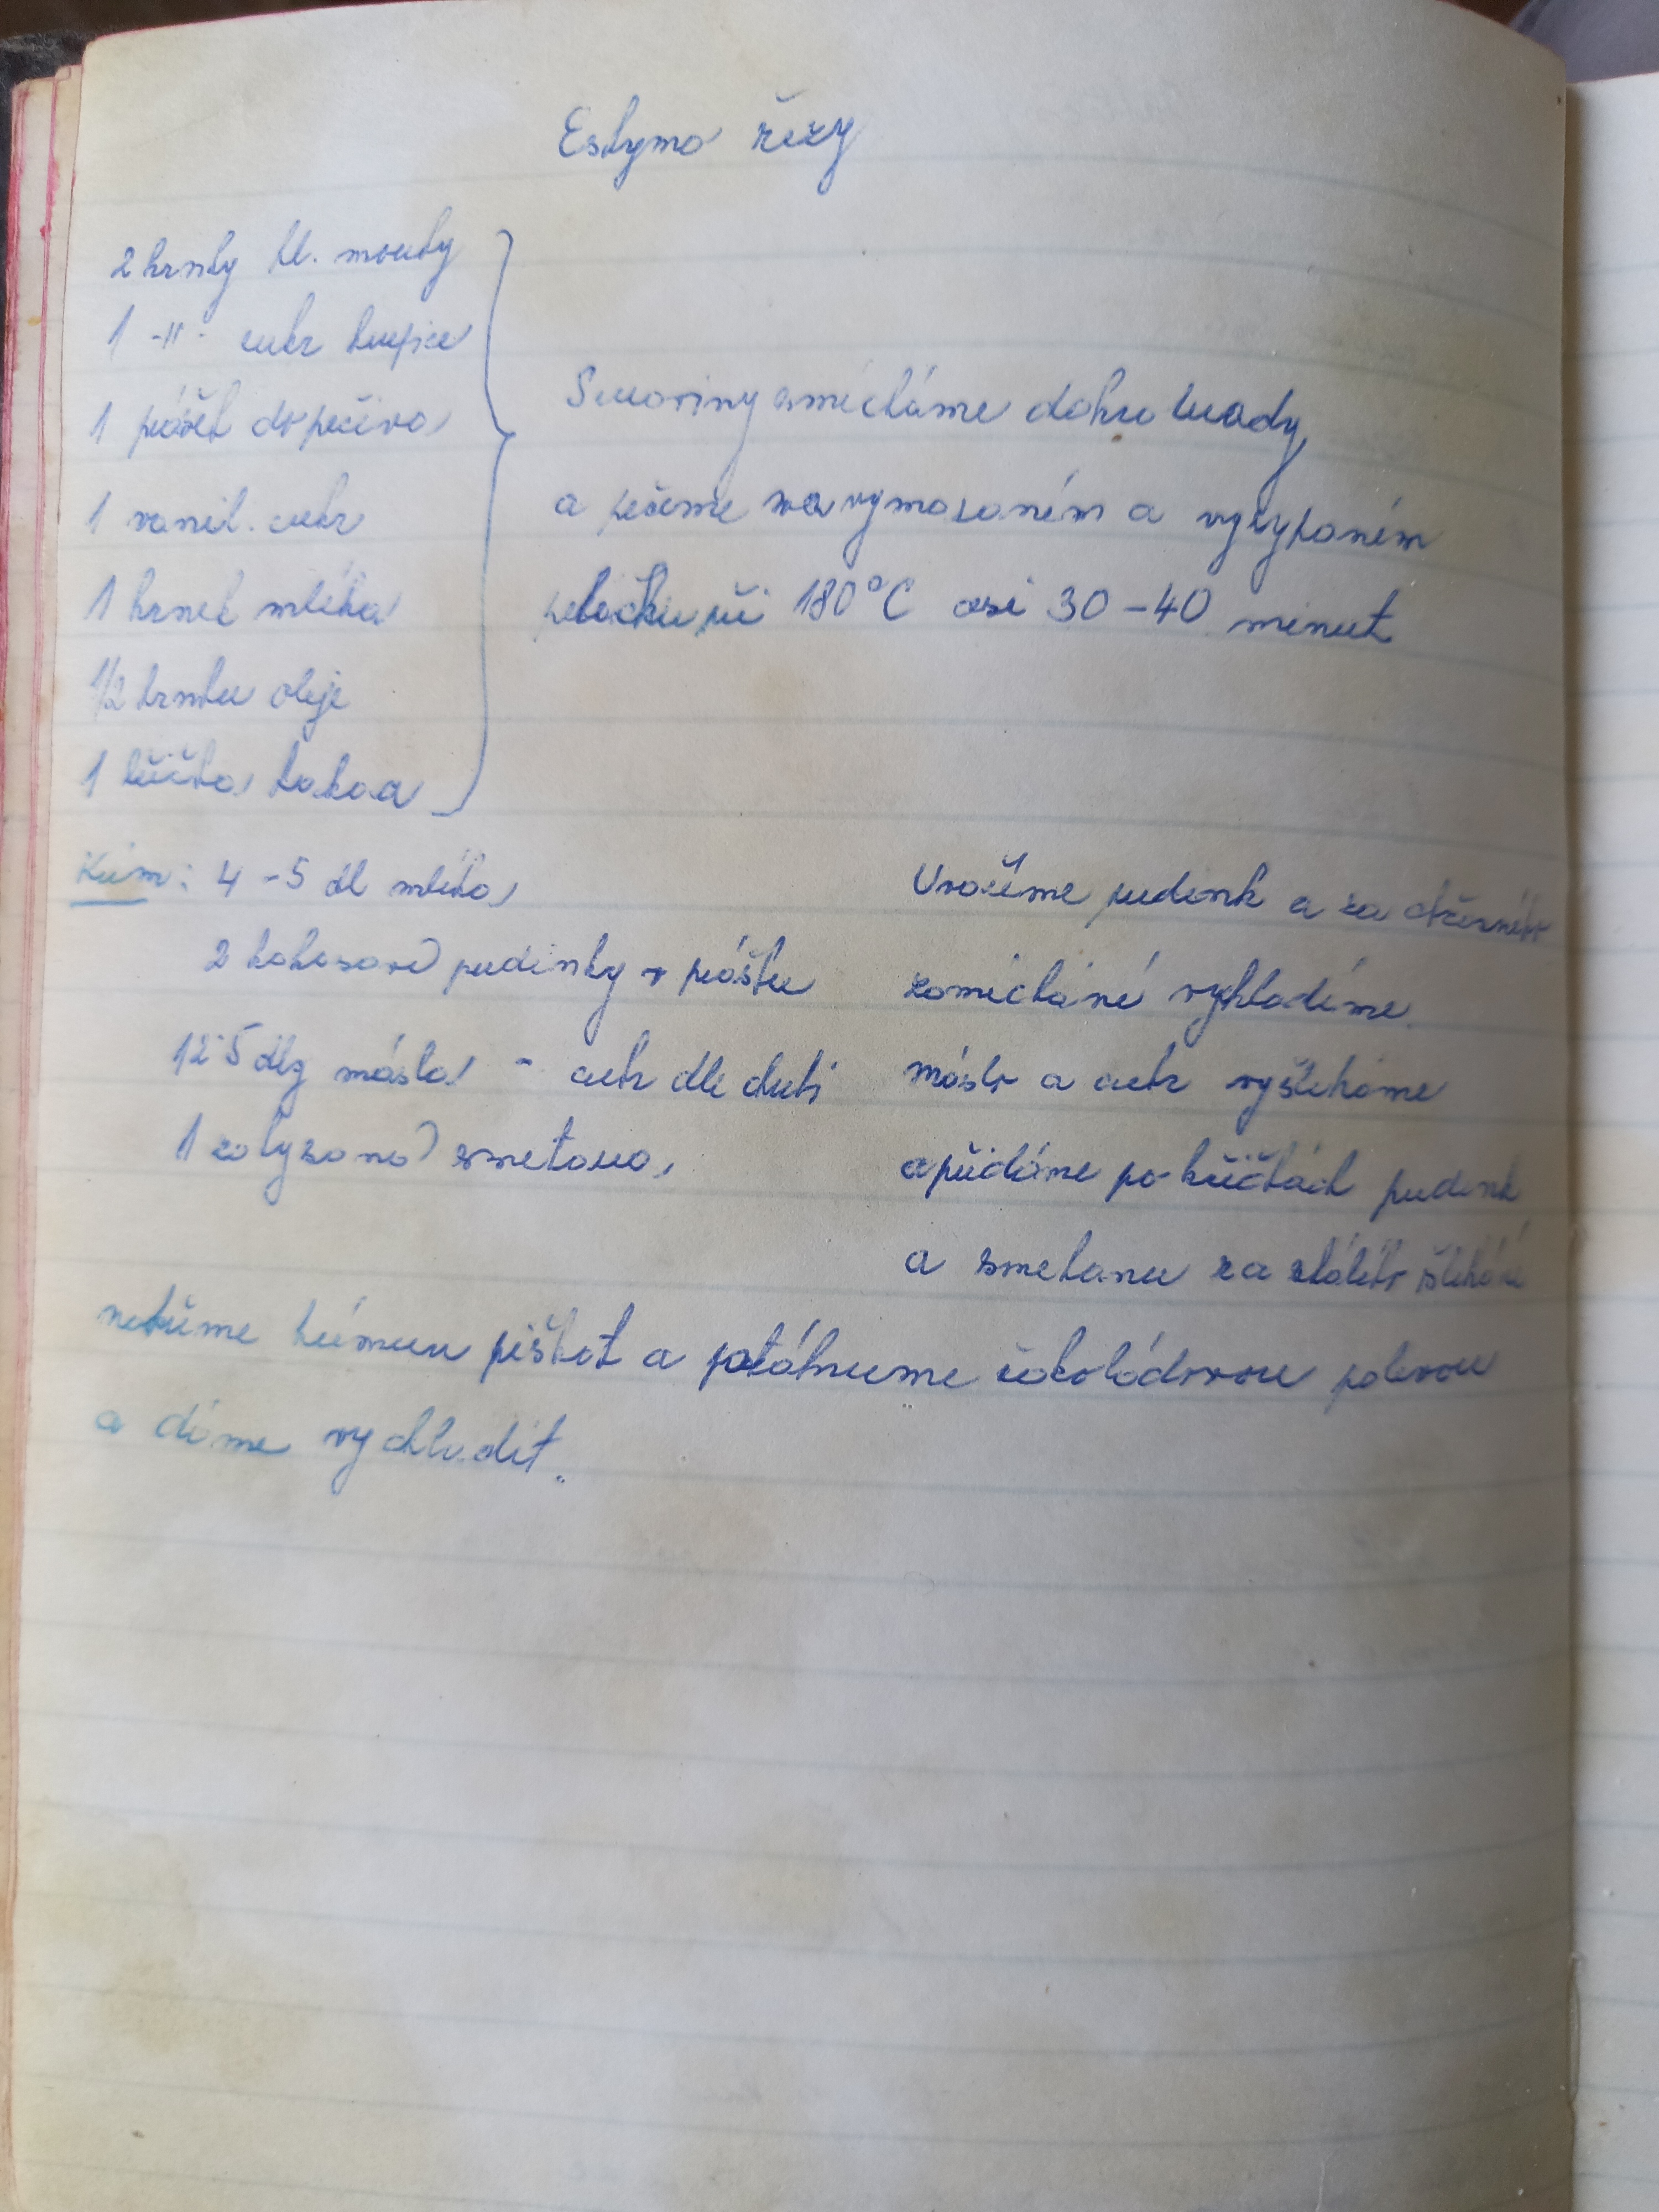 Eskymo řezy
2 hrnky hl. mouky
1 -"- cukr krupice
1 prášek do pečiva
1 vanil. cukr
1 hrnek mléka
1/2 hrnku oleje
1 lžička kakaa
Suroviny smícháme dohromady
a pečeme na vymazaném a vysypaném
plechu při 180°C asi 30-40 minut
Krém: 4-5 dl mléka
2 kokosové pudinky v prášku
12·5 dkg másla - cukr dle chuti
1 zakysaná smetana,
Uvaříme pudink a za občasného
zamíchání vychladíme
máslo a cukr vyšleháme
a přidáme po lžičkách pudink
a smetanu za stálého šlehání
natřeme krémem piškot a potáhneme čokoládovou polevou
a dáme vychladit.